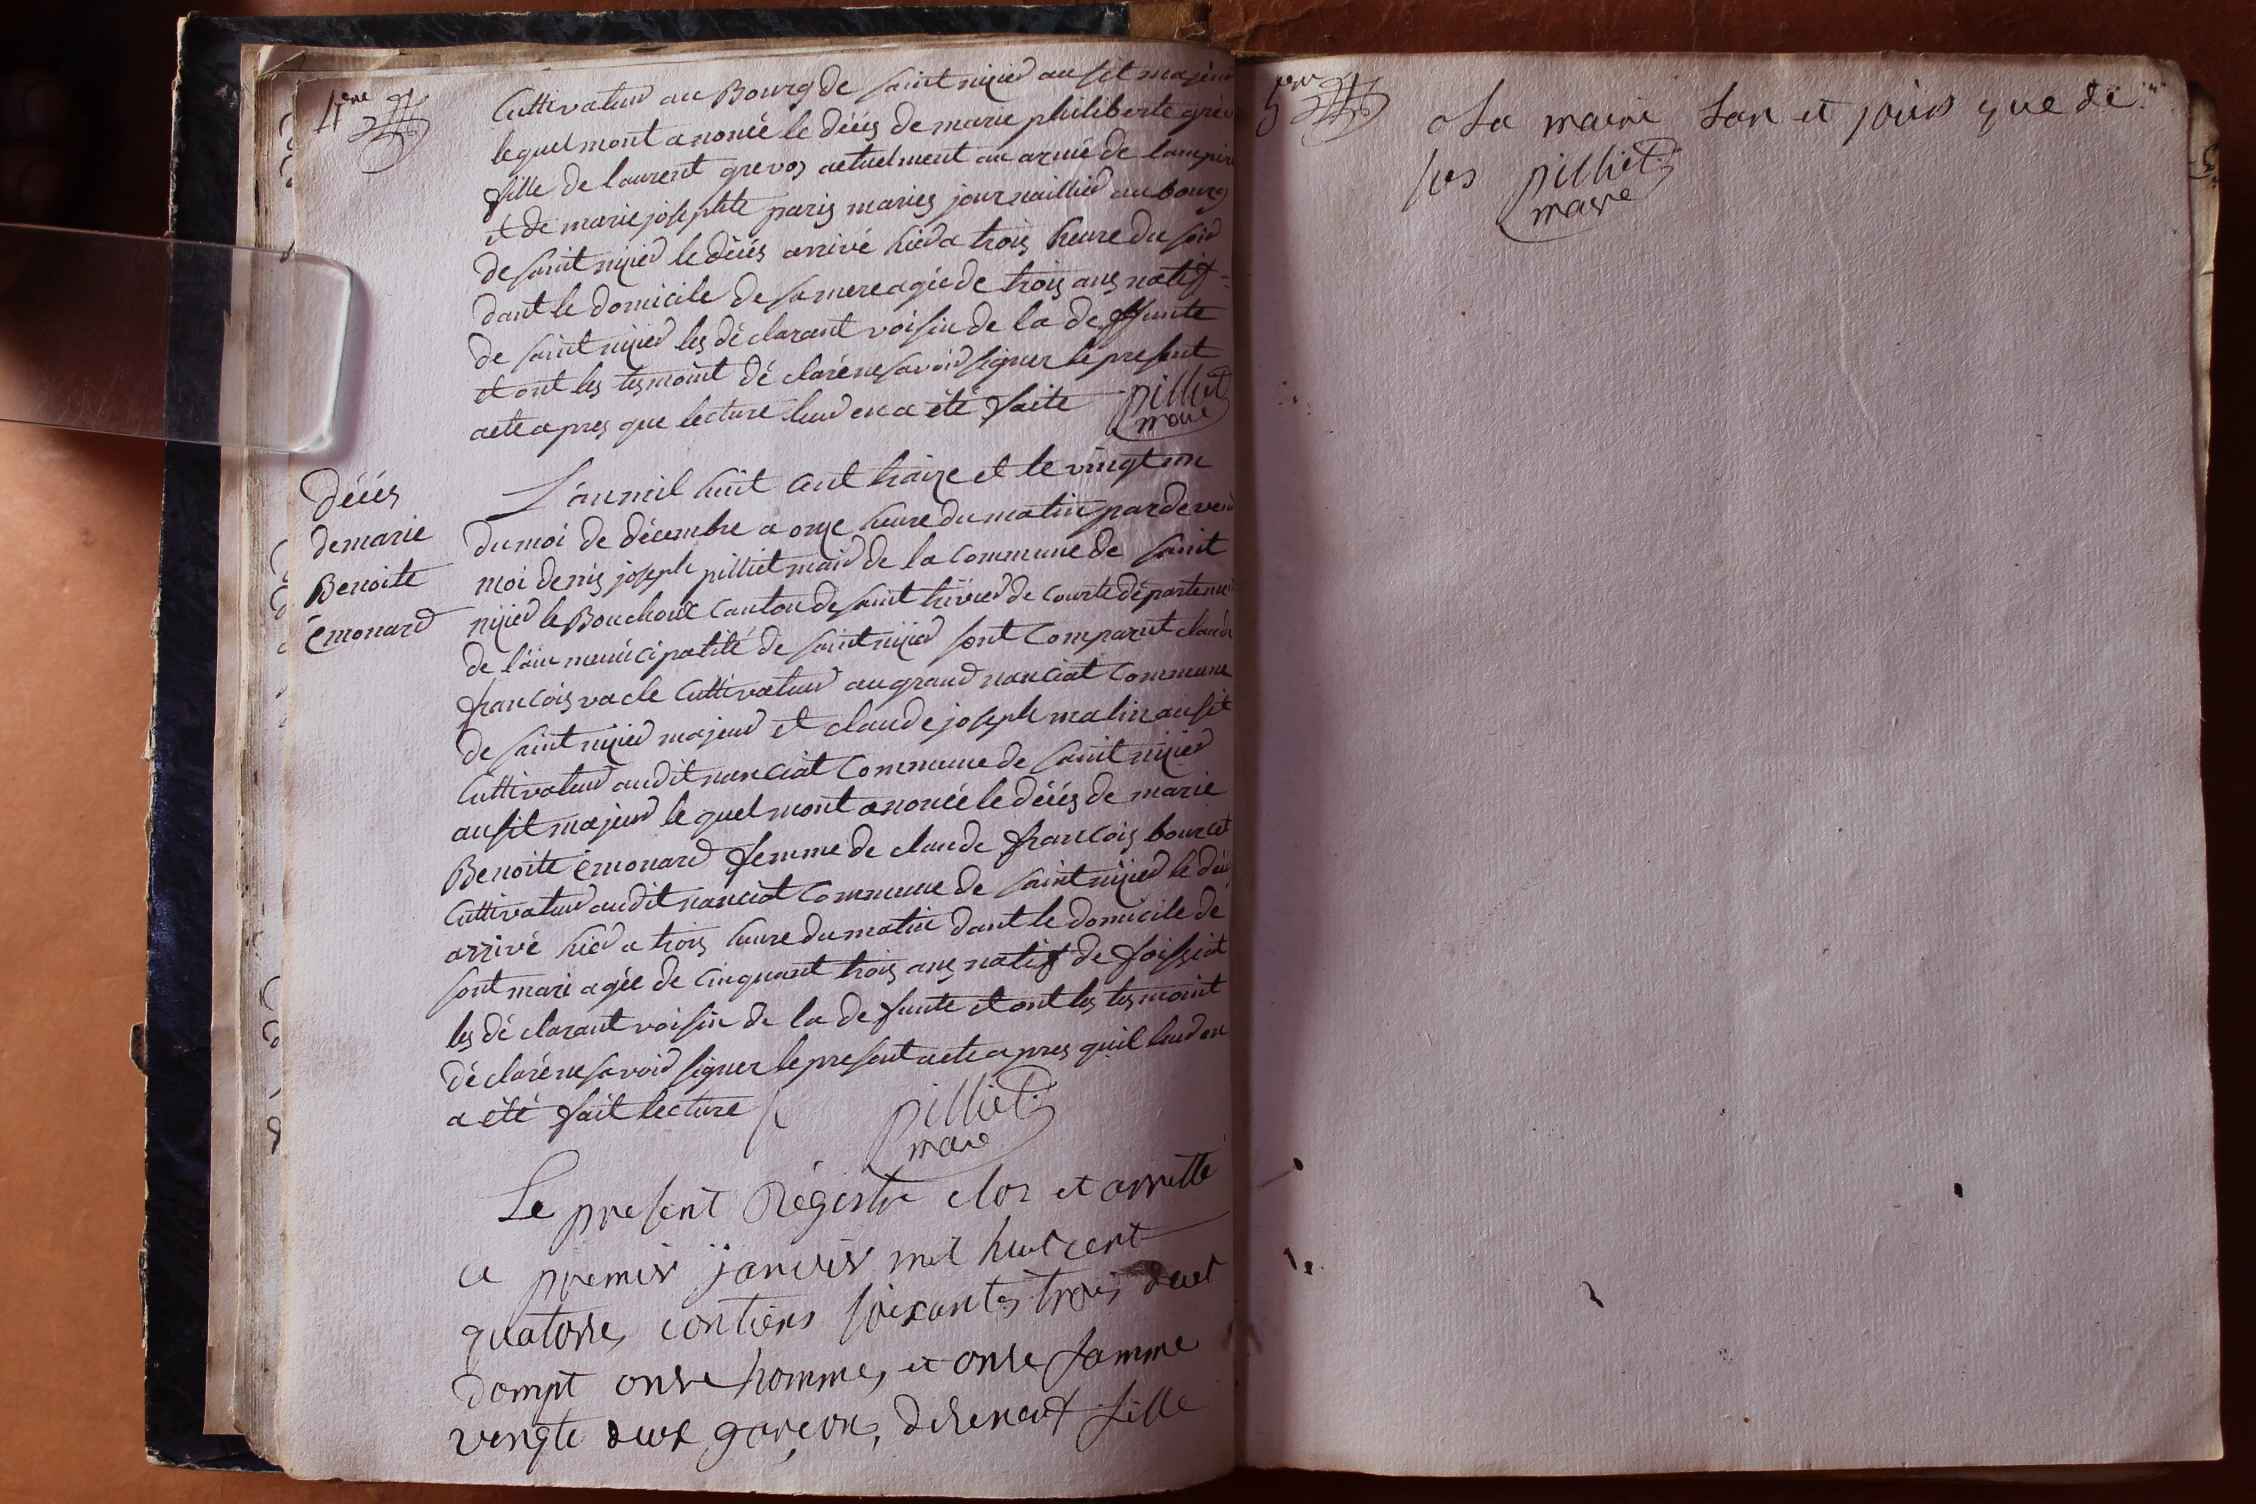 4eme
Cultivateur au Bourg de saint nizier ausit majeur
lequel mont anoncé le déces de marie philiberte grevo
fille de laurent grevoz actuelment au armé de lampire
et de marie josephte paris mariés journaillier au bourg
de saint nizier le déces arrivé hier a trois heure du soir
dant le domicile de sa mere agée de trois ans natif
de saint nizier les déclarant voisin de la deffunte
et ont les tesmoint déclaré ne savoir signer le present
acte apres que lecture leur en a été faite pilliet
maire
Déces
de marie
Benoite
émonard
L'an mil huit cent traize et le vingt un
du moi de décembre a onze heure du matin pardevent
moi denis joseph pilliet mair de la commune de saint
nizier le Bouchoux canton de saint trivier de courte départemen
de l'ain municipalité de saint nizier sont comparut claude
francois vacle Cultivateur au grand nanciat commune
de saint nizier majeur et claude joseph matin ausit
Cultivateur audit nanciat commune de saint nizier
ausit majeur le quel mont anoncé le déces de marie
Benoite émonard femme de claude francois bourcet
Cultivateur audit nanciat commune de saint nizier le déc
arrivé hier a trois heure du matin dant le domicile de
sont mari agée de cinquant trois ans natif de foissiat
les déclarant voisin de la defunte et ont les tesmoint
déclaré ne savoir signer le present acte apres quil leur en
a été fait lecture pilliet
maire
Le present Régistre clos et arretté
ce premier janvier mil huit cent
quatorse, contiens soixante trois decet
dompt onse homme, et onse famme
vengte deux garcon, diseneuf fille
5eme
a La mairie Lan et jours que de
sus pilliet
maire